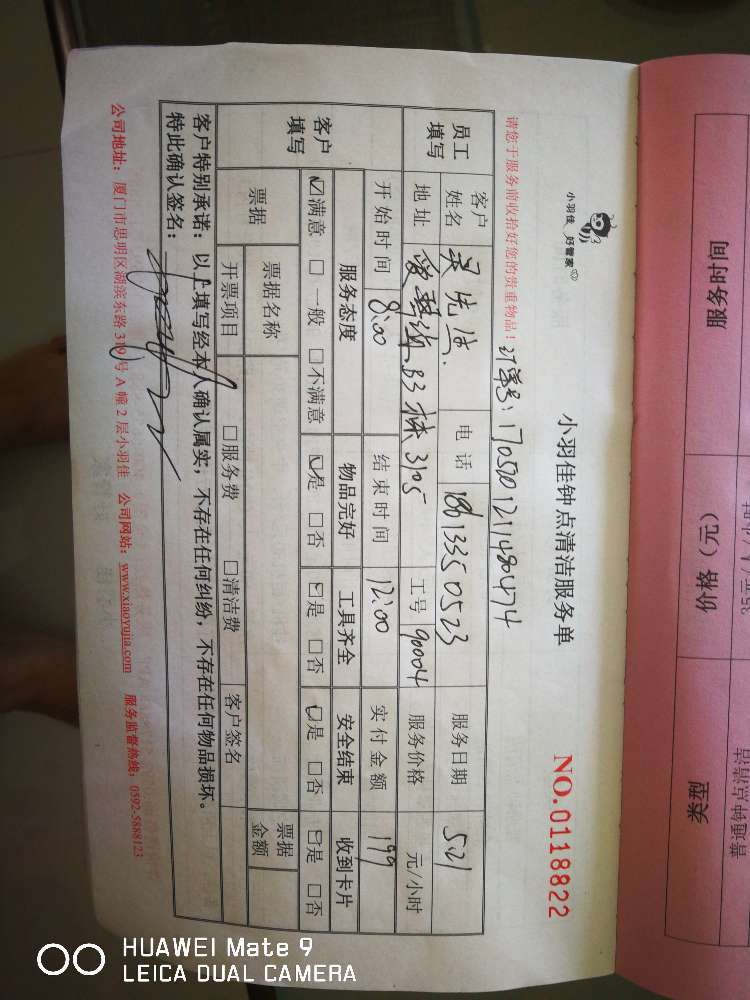 小羽佳 好管家
小羽佳钟点清洁服务单
NO.0118822
请您于服务前收拾好您的贵重物品！
订单号：1705201211480474
员工填写
客户姓名 吴先生 电话 18613350523 服务日期 5.21
地址 B3栋3105 工号 90004 服务价格 元/小时
开始时间 8:00 结束时间 12:00 实付金额 199
客户填写
服务态度 物品完好 工具齐全 安全结束 收到卡片
☑满意 □一般 □不满意 ☑是 □否 ☑是 □否 ☑是 □否 ☑是 □否
票据 票据名称 票据金额
开票项目 □服务费 □清洁费 客户签名
客户特别承诺：以上填写经本人确认属实，不存在任何纠纷，不存在任何物品损坏。
特此确认签名：
公司地址：厦门市思明区湖滨东路319号A幢2层小羽佳 公司网站：www.xiaoyujia.com 服务监督热线：0592-5888123
服务时间 价格（元） 类型
普通钟点清洁
HUAWEI Mate 9
LEICA DUAL CAMERA